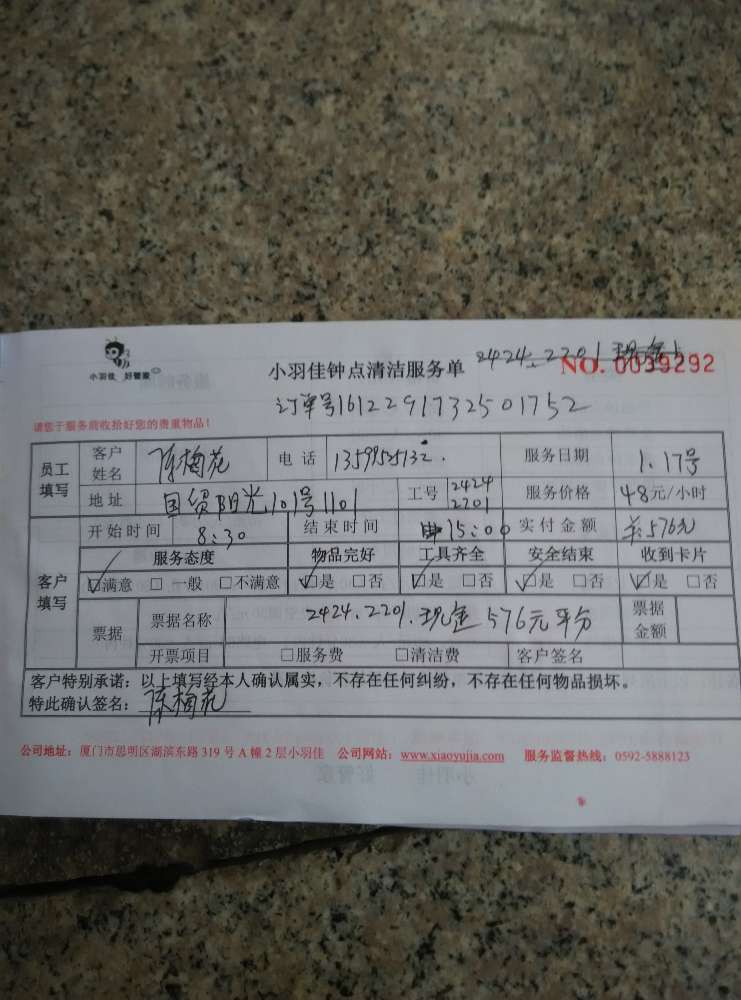 小羽佳 好管家
小羽佳钟点清洁服务单 2424.2701现金
NO. 0039292
订单号1612291732501752
请您于服务前收拾好您的贵重物品！
员工填写 客户姓名 陈梅花 电话 服务日期 1.17号
地址 国贸阳光101号1101 工号 2424 2701 服务价格 48元/小时
客户填写 开始时间 8:30 结束时间 15:00 实付金额 576元
服务态度 物品完好 工具齐全 安全结束 收到卡片
☑满意 □一般 □不满意 ☑是 □否 ☑是 □否 ☑是 □否 ☑是 □否
票据 票据名称 2424.2701.现金576元平分 票据金额
开票项目 □服务费 □清洁费 客户签名
客户特别承诺：以上填写经本人确认属实，不存在任何纠纷，不存在任何物品损坏。
特此确认签名：陈梅花
公司地址：厦门市思明区湖滨东路 319 号 A 幢 2 层小羽佳 公司网站：www.xiaoyujia.com 服务监督热线：0592-5888123